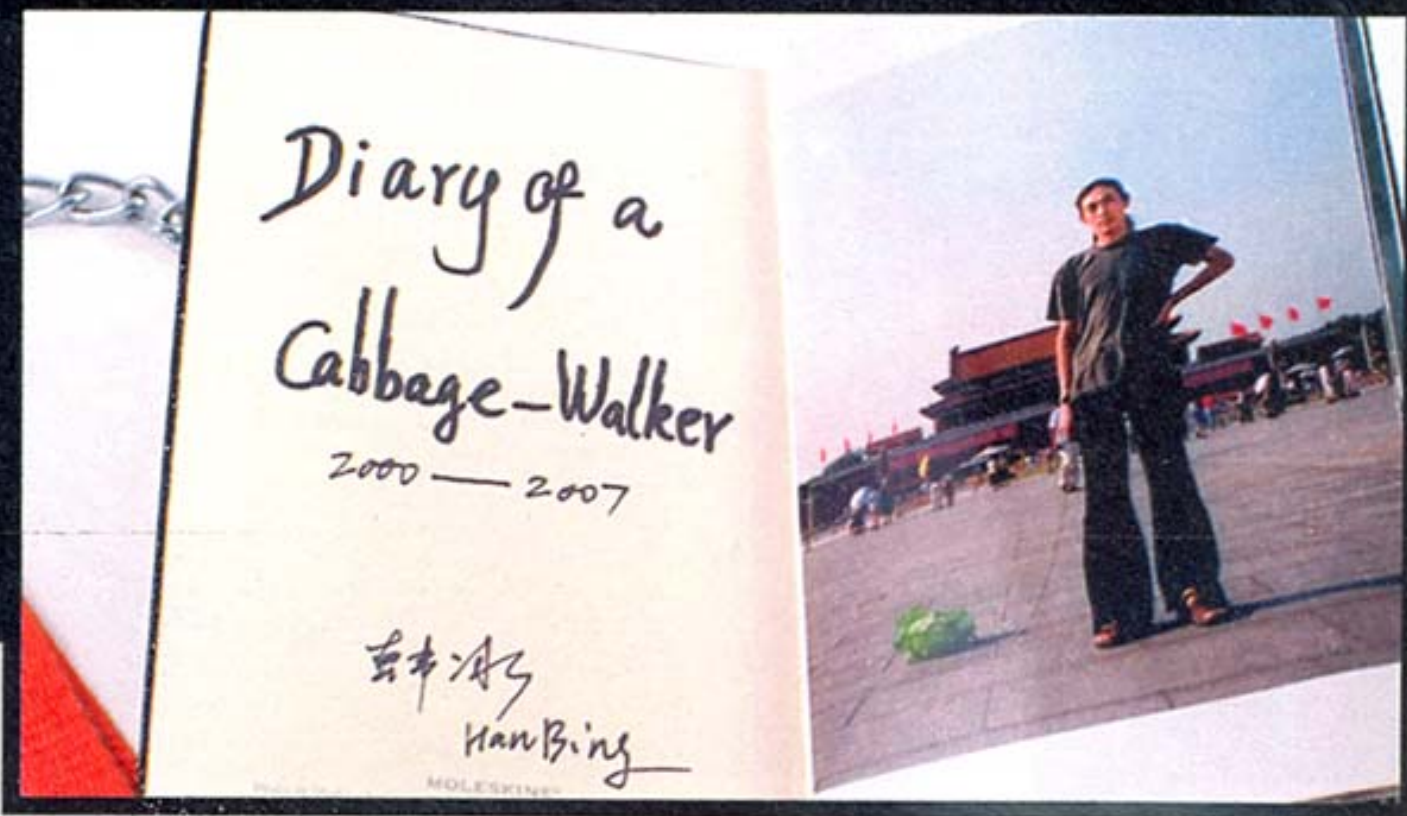 Diary of a
Cabbage-Walker
2000 — 2007
韩冰
HanBing
MOLESKINE®